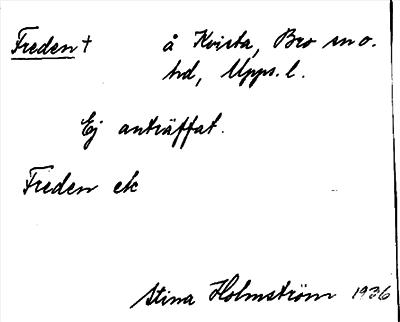 Freden † å Kvista, Bro sn o.
hd, Upps. l.
Ej anträffat.
Freden ek
Stina Holmström 1936